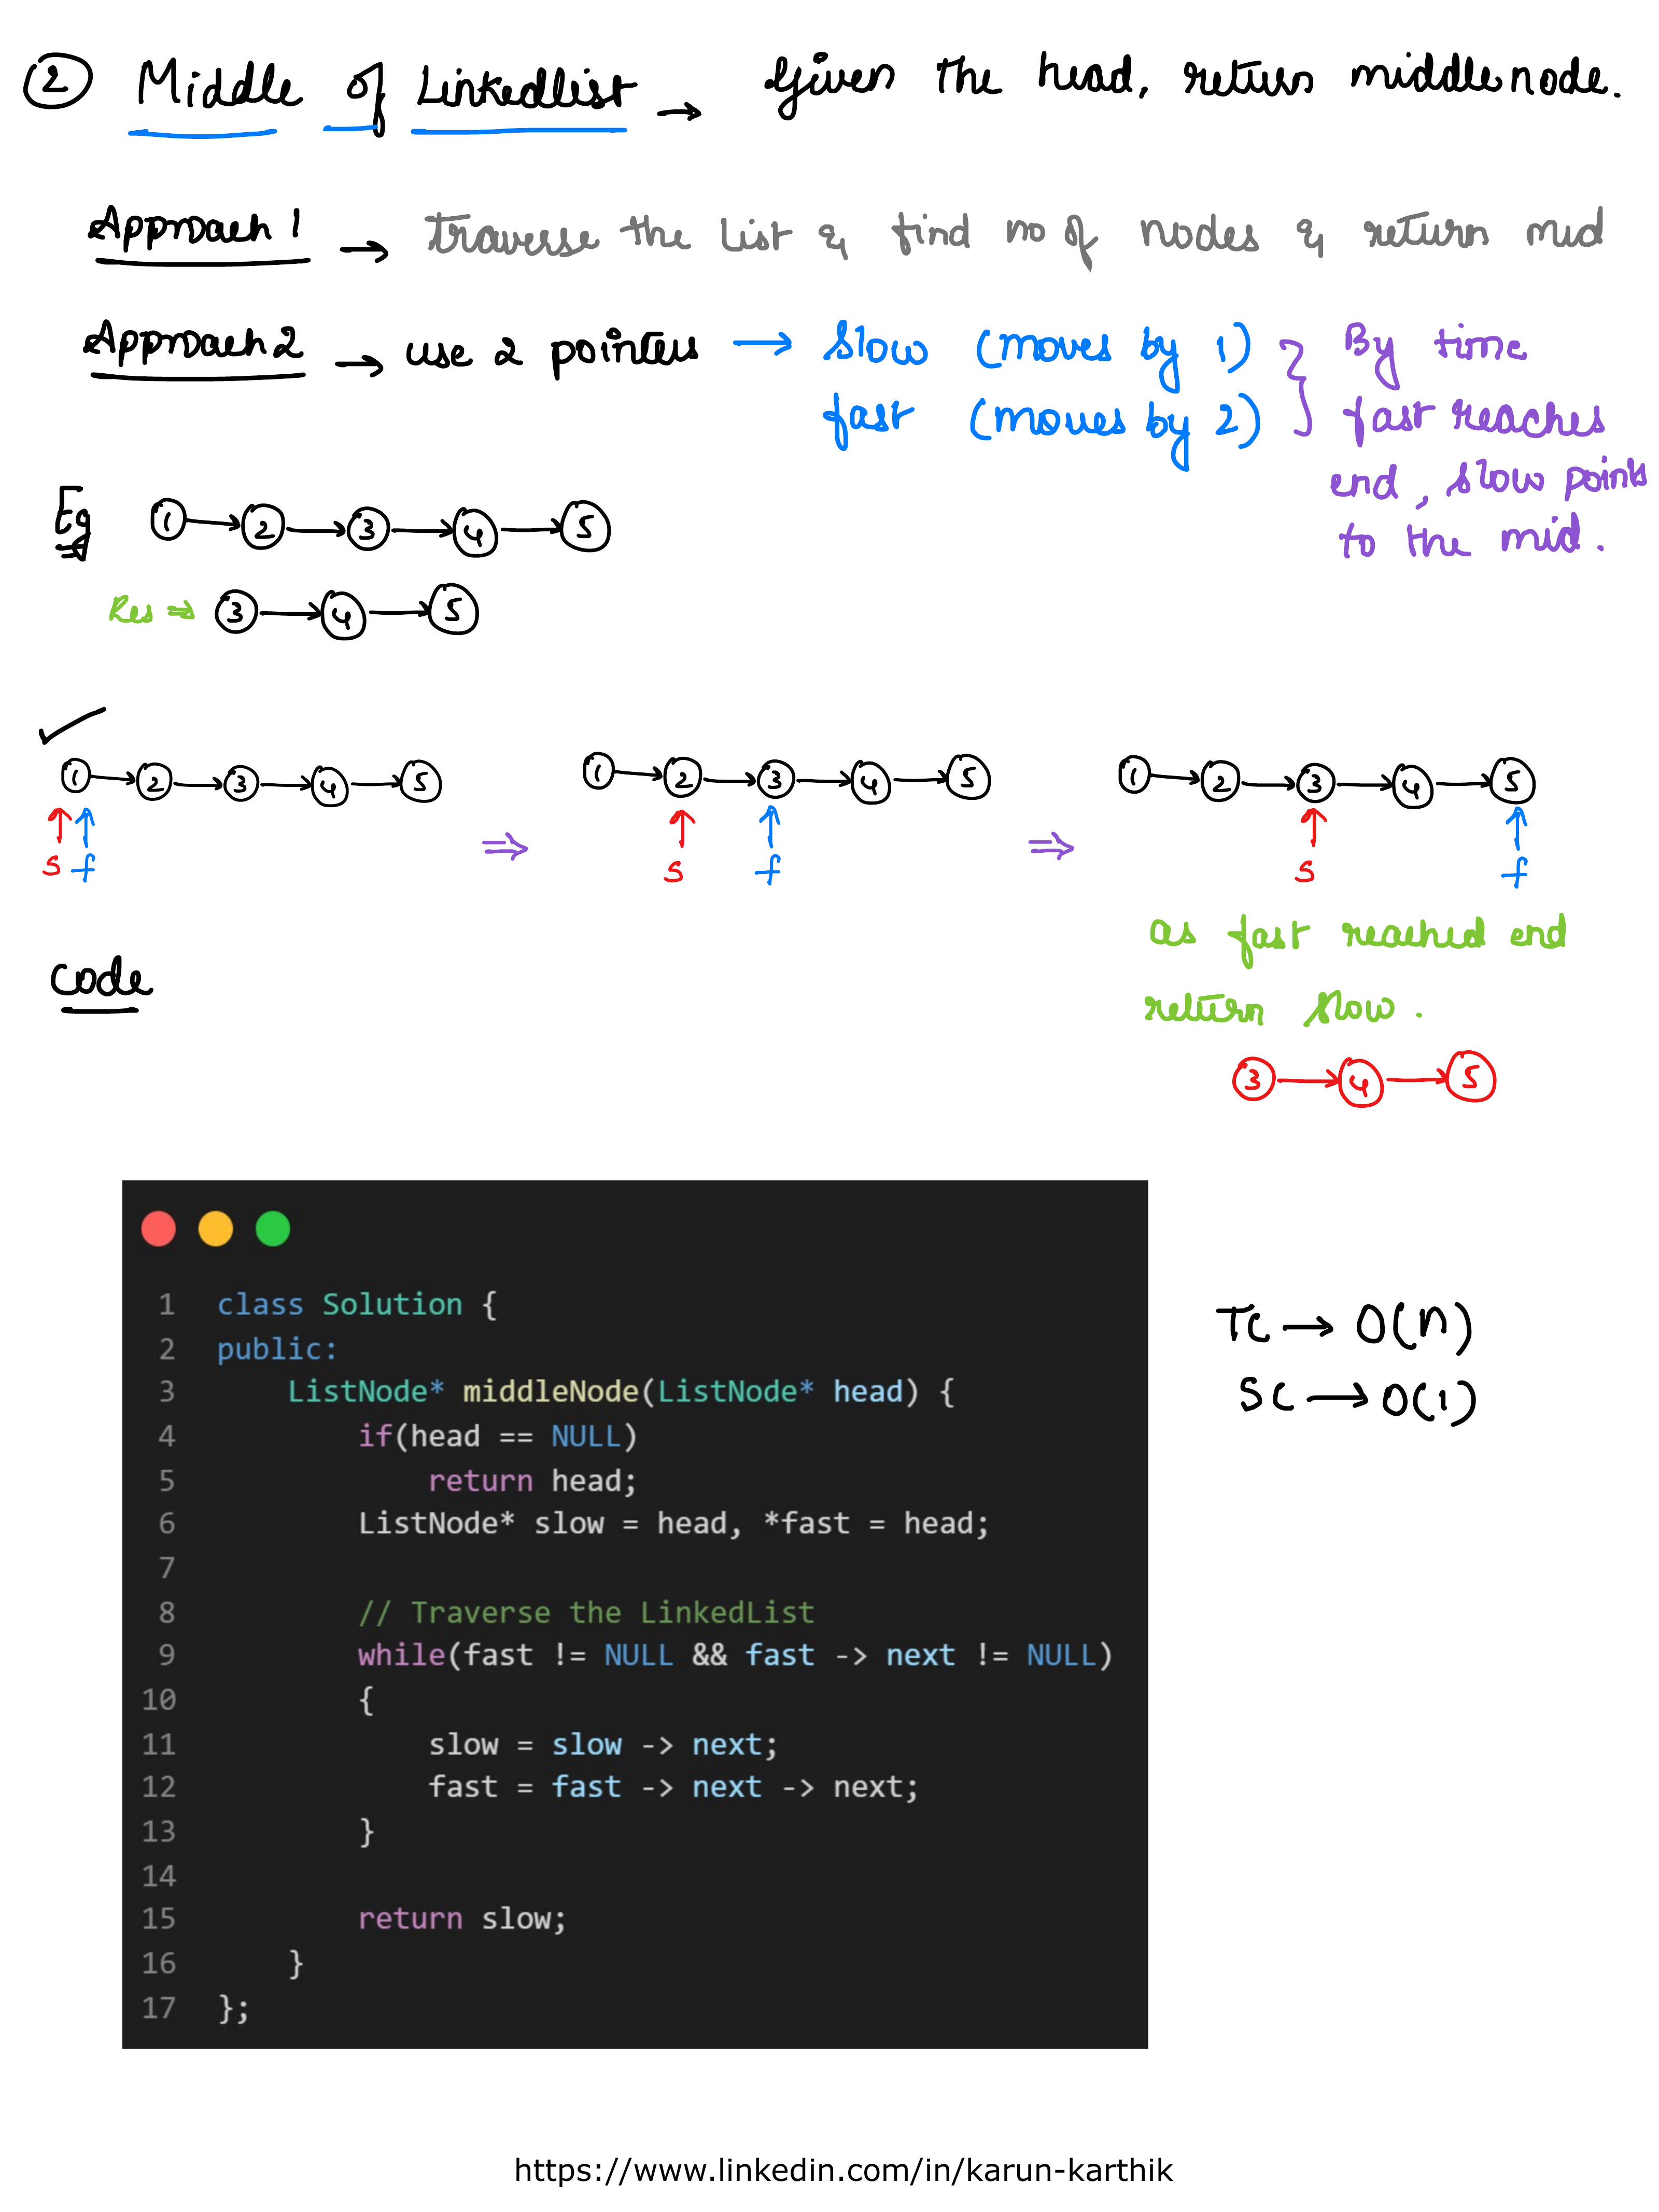 2 Middle of Linkedlist → Given the head, return middle node.
Approach 1 → traverse the list & find no of nodes & return mid
Approach 2 → use 2 pointers → slow (moves by 1) } By time
fast (moves by 2) fast reaches
end, slow points
to the mid.
Eg 1 → 2 → 3 → 4 → 5
Res ⇒ 3 → 4 → 5
✓
1 → 2 → 3 → 4 → 5 ⇒ 1 → 2 → 3 → 4 → 5 ⇒ 1 → 2 → 3 → 4 → 5
s f s f s f
as fast reached end
return slow.
3 → 4 → 5
Code
1 class Solution {
2 public:
3     ListNode* middleNode(ListNode* head) {
4         if(head == NULL)
5             return head;
6         ListNode* slow = head, *fast = head;
7
8         // Traverse the LinkedList
9         while(fast != NULL && fast -> next != NULL)
10         {
11             slow = slow -> next;
12             fast = fast -> next -> next;
13         }
14
15         return slow;
16     }
17 };
TC → O(n)
SC → O(1)
https://www.linkedin.com/in/karun-karthik